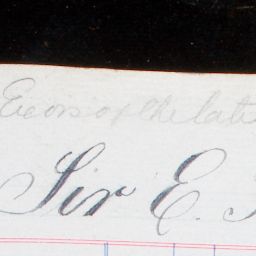 Exors of the late
Sir E.